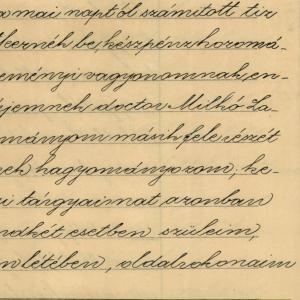 a mai naptól számított tiz
kezném be, készpénz hozomá-
leményi vagyonomnak, en-
férjemnek doctor Milkó La-
mányom másik fele részét
nek hagyományozom, ke-
zi tárgyaimat azonban
ndkét esetben szüleim,
nlétében, oldalrokonaim